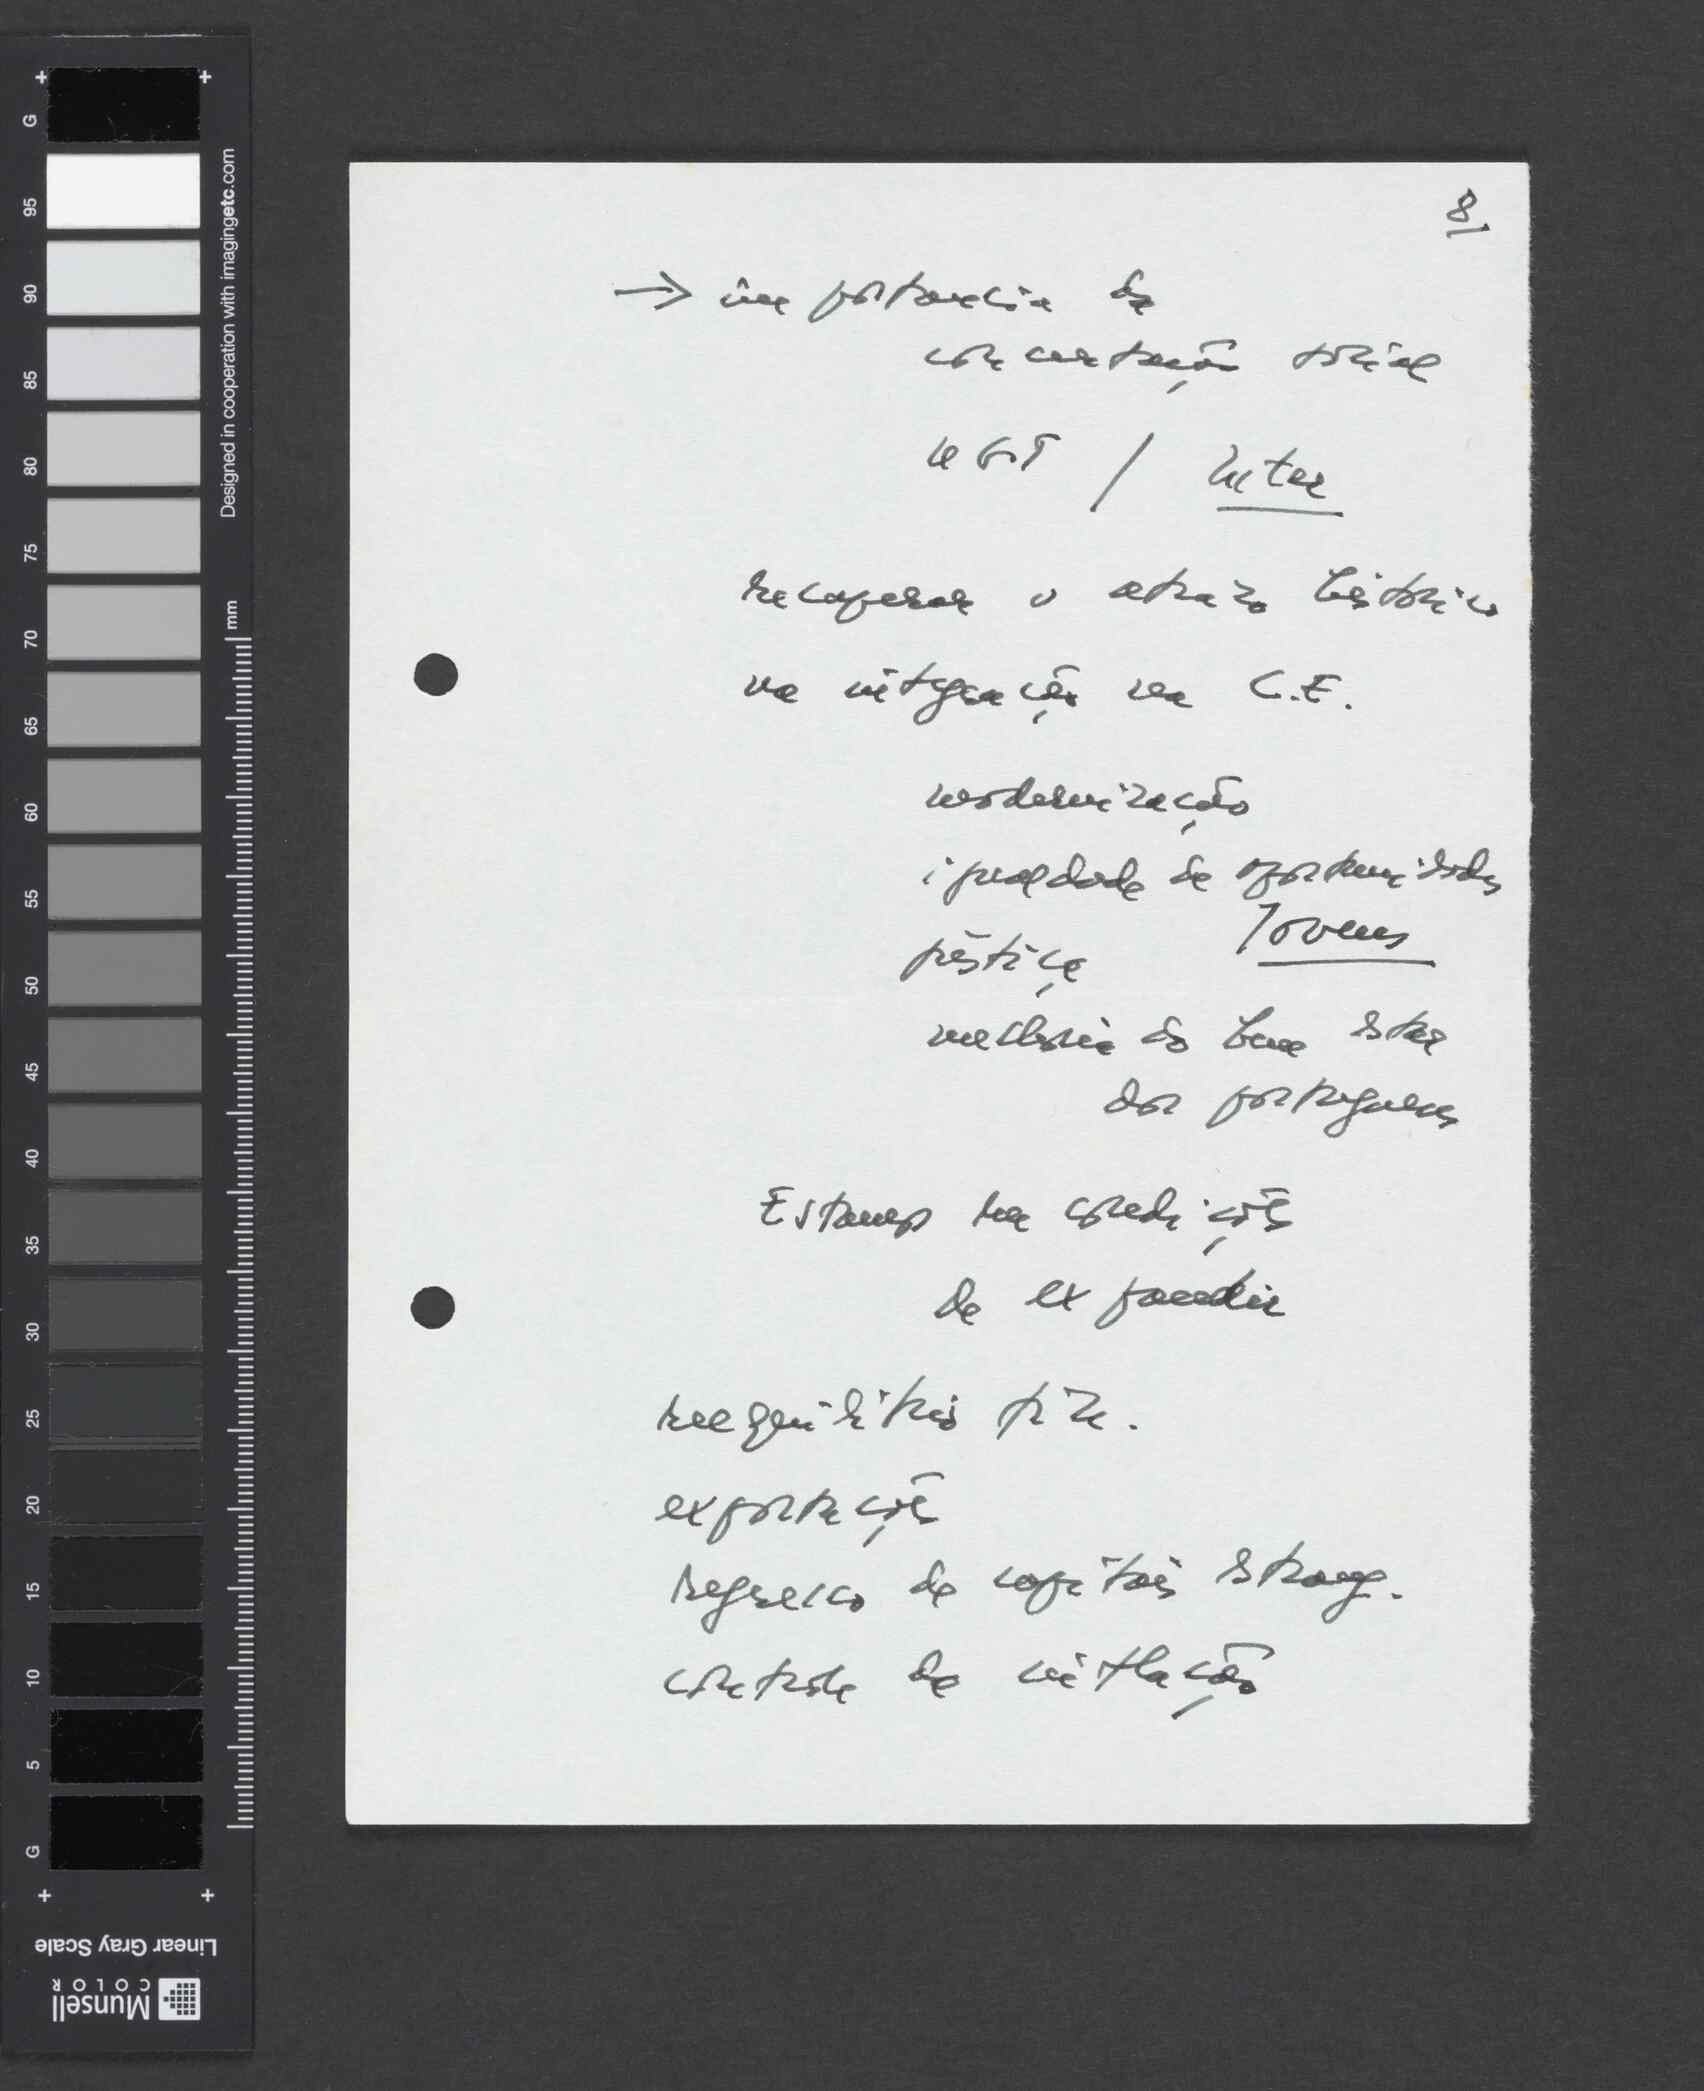 8/
→ importancia da
concertação social
UGT / Inter
recuperar o atrazo histórico
na integração na C.E.
modernização
igualdade de oportunidades
Jovens
justiça
melhoria do bem estar
dos portugueses
Estamos em condições
de expandir
reequilibrio fin.
exportações
regresso de capitais estrang.
controle da inflação
G
95
90
85
80
75
70
65
60
55
50
45
40
35
30
25
20
15
10
5
G
Designed in cooperation with imagingetc.com
mm
Linear Gray Scale
Munsell
COLOR